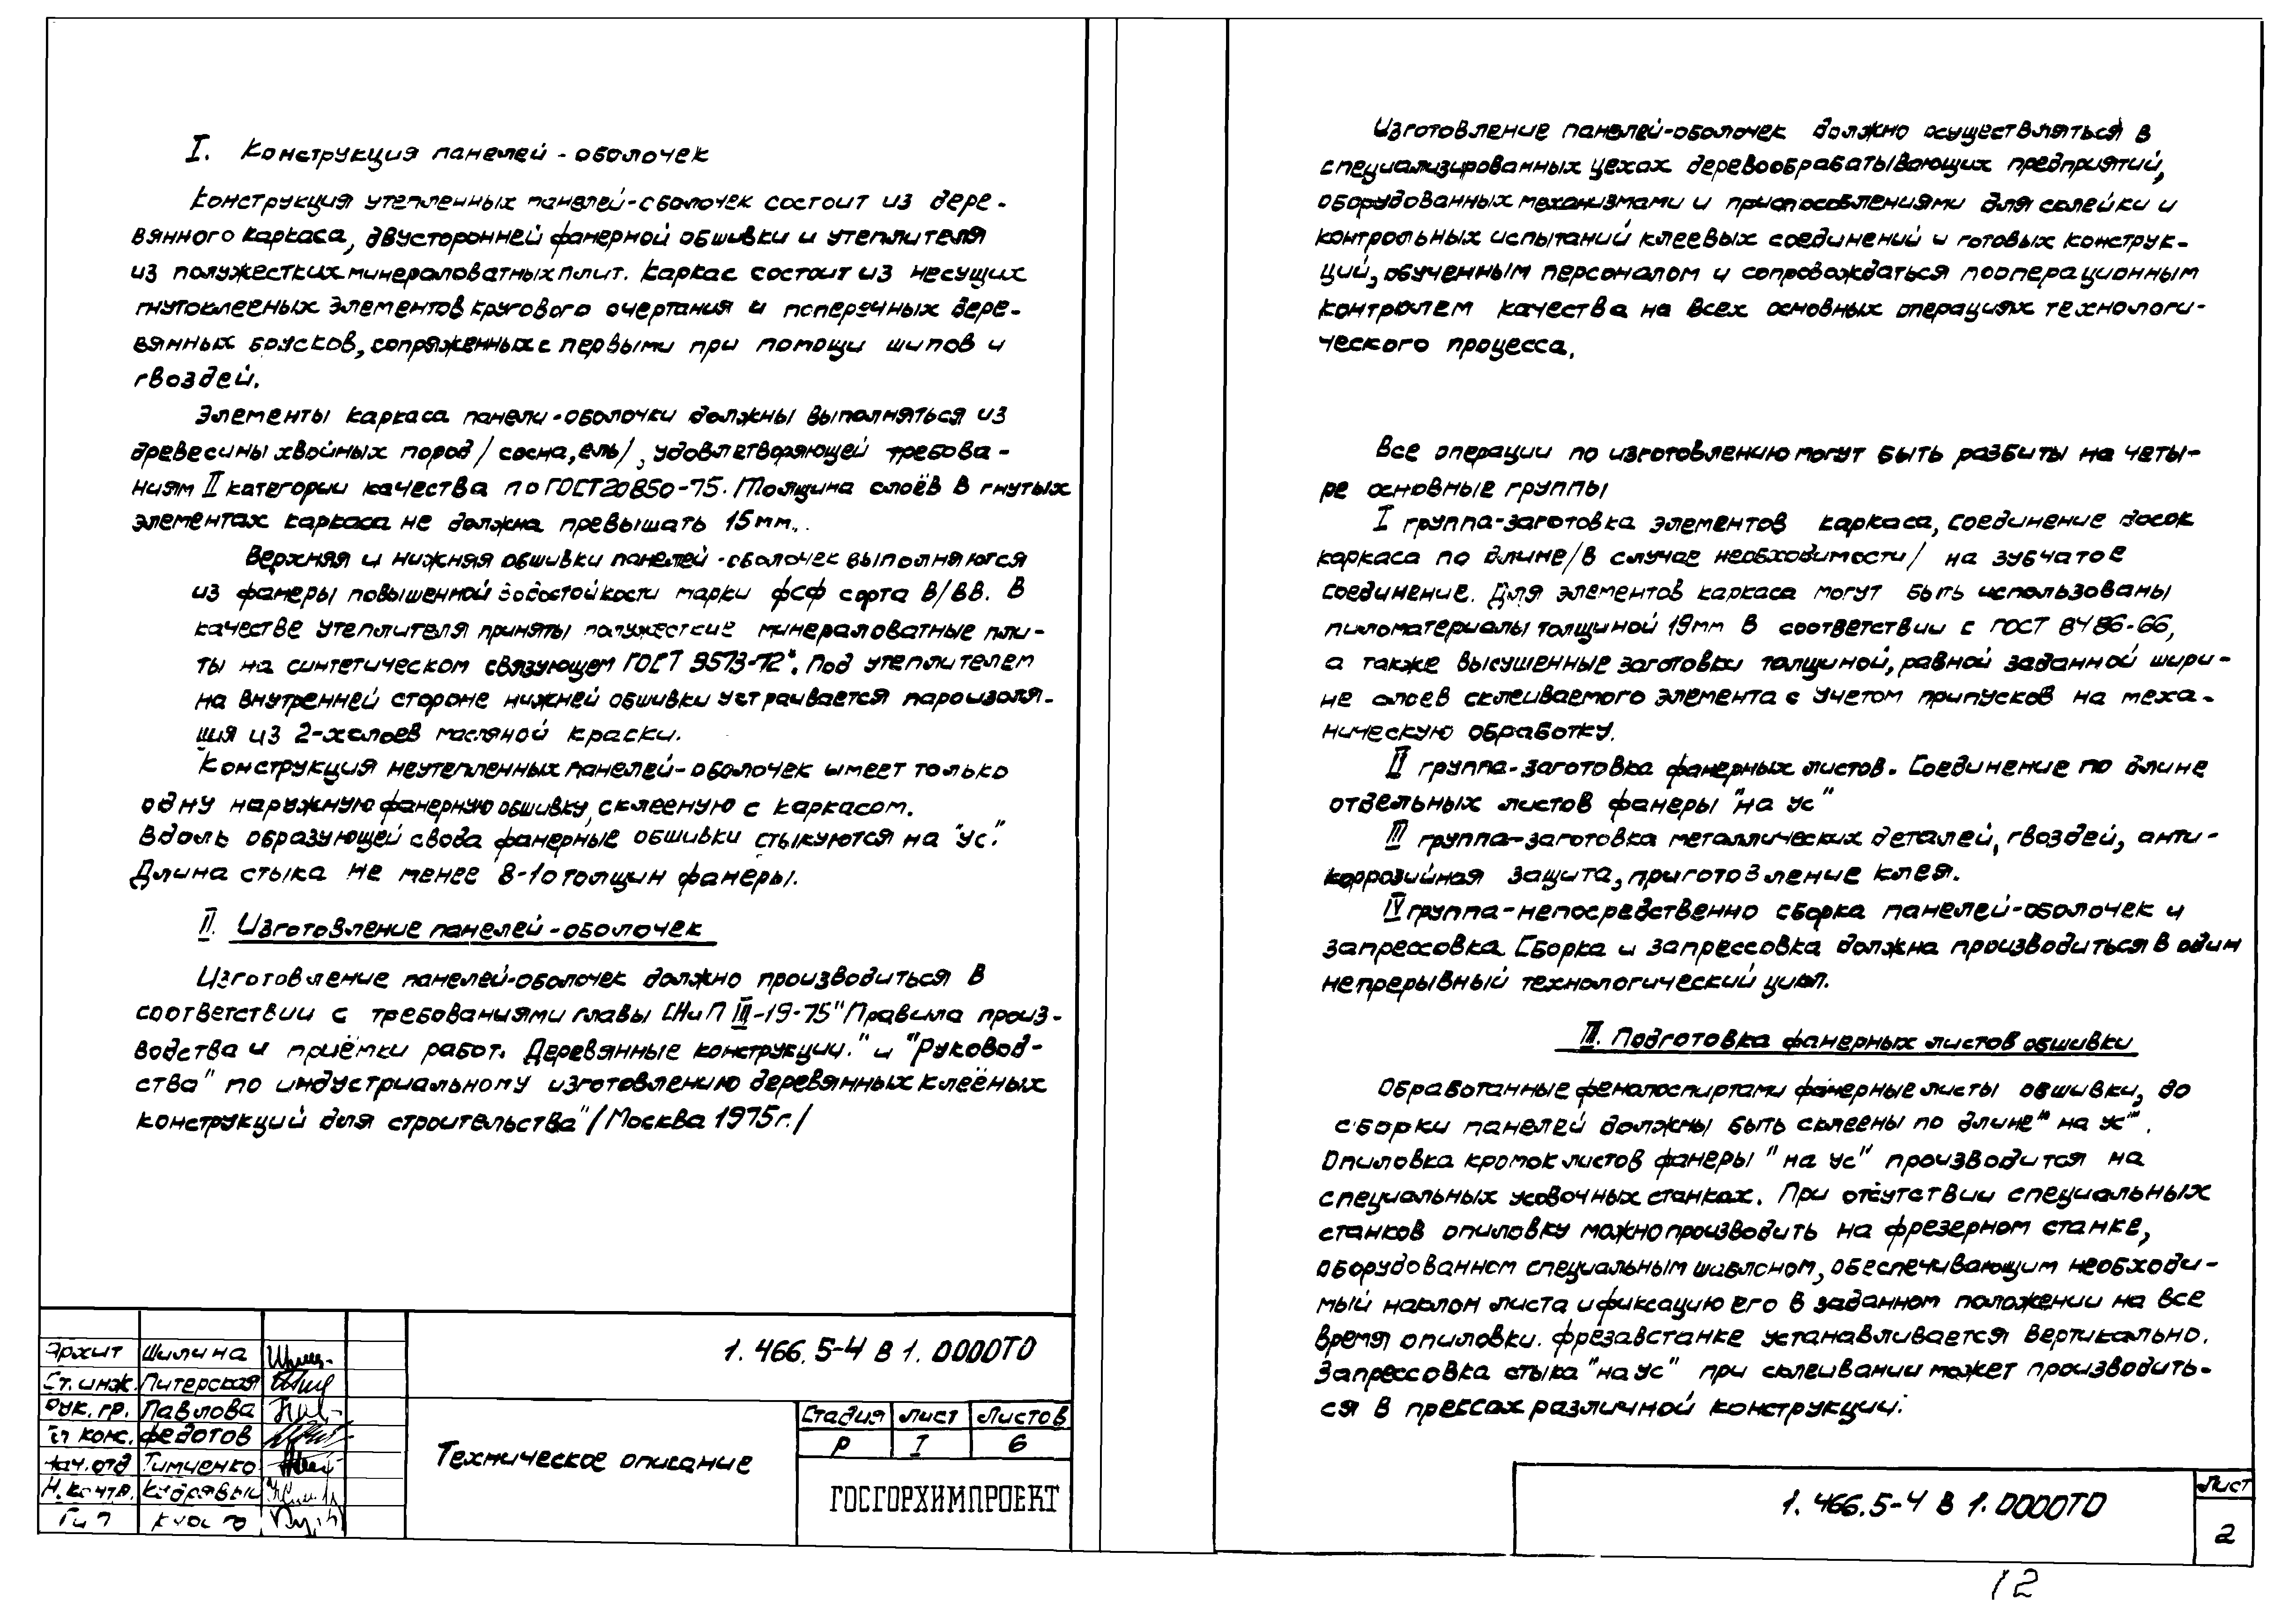 I. Конструкция панелей-оболочек
Конструкция утепленных панелей-оболочек состоит из дере-
вянного каркаса, двусторонней фанерной обшивки и утеплителя
из полужестких минераловатных плит. Каркас состоит из несущих
гнутоклееных элементов кругового очертания и поперечных дере-
вянных брусков, сопряженных с первыми при помощи шипов и
гвоздей.
Элементы каркаса панели-оболочки должны выполняться из
древесины хвойных пород /сосна, ель/, удовлетворяющей требова-
ниям II категории качества по ГОСТ 20850-75. Толщина слоёв в гнутых
элементах каркаса не должна превышать 15мм.
Верхняя и нижняя обшивки панелей-оболочек выполняются
из фанеры повышенной водостойкости марки ФСФ сорта В/ВВ. В
качестве утеплителя приняты полужесткие минераловатные пли-
ты на синтетическом связующем ГОСТ 9573-72*. Под утеплителем
на внутренней стороне нижней обшивки устраивается пароизоля-
ция из 2-х слоев масляной краски.
Конструкция неутепленных панелей-оболочек имеет только
одну наружную фанерную обшивку, склееную с каркасом.
Вдоль образующей свода фанерные обшивки стыкуются на "ус".
Длина стыка не менее 8-10 толщин фанеры.
II. Изготовление панелей-оболочек
Изготовление панелей-оболочек должно производиться в
соответствии с требованиями главы СНиП III-19-75 "Правила произ-
водства и приёмки работ. Деревянные конструкции." и "Руковод-
ства" по индустриальному изготовлению деревянных клеёных
конструкций для строительства" /Москва 1975г./
1.466.5-4 В 1.0000ТО
Архит Шилина
Ст. инж. Питерская
Рук. гр. Павлова
Гл конс. Федотов
Нач. отд Тимченко
Н. контр. Кудрявых
Гип
Техническое описание
Стадия Лист Листов
Р I 6
ГОСГОРХИМПРОЕКТ
Изготовление панелей-оболочек должно осуществляться в
специализированных цехах деревообрабатывающих предприятий,
оборудованных механизмами и приспособлениями для склейки и
контрольных испытаний клеевых соединений и готовых конструк-
ций, обученным персоналом и сопровождаться пооперационным
контролем качества на всех основных операциях технологи-
ческого процесса.
Все операции по изготовлению могут быть разбиты на четы-
ре основные группы
I группа-заготовка элементов каркаса, соединение досок
каркаса по длине /в случае необходимости/ на зубчатое
соединение. Для элементов каркаса могут быть использованы
пиломатериалы толщиной 19мм в соответствии с ГОСТ 8486-66,
а также высушенные заготовки толщиной, равной заданной шири-
не слоев склеиваемого элемента с учетом припусков на меха-
ническую обработку.
II группа-заготовка фанерных листов. Соединение по длине
отдельных листов фанеры "на ус"
III группа-заготовка металлических деталей, гвоздей, анти-
коррозийная защита, приготовление клея.
IV группа-непосредственно сборка панелей-оболочек и
запрессовка. Сборка и запрессовка должна производиться в один
непрерывный технологический цикл.
III. Подготовка фанерных листов обшивки
Обработанные фенолоспиртами фанерные листы обшивки, до
сборки панелей должны быть склеены по длине "на ус".
Опиловка кромок листов фанеры "на ус" производится на
специальных усовочных станках. При отсутствии специальных
станков опиловку можно производить на фрезерном станке,
оборудованном специальным шаблоном, обеспечивающим необходи-
мый наклон листа и фиксацию его в заданном положении на все
время опиловки. Фреза в станке устанавливается вертикально.
Запрессовка стыка "на ус" при склеивании может производить-
ся в прессах различной конструкции.
1.466.5-4 В 1.0000ТО
Лист
2
12